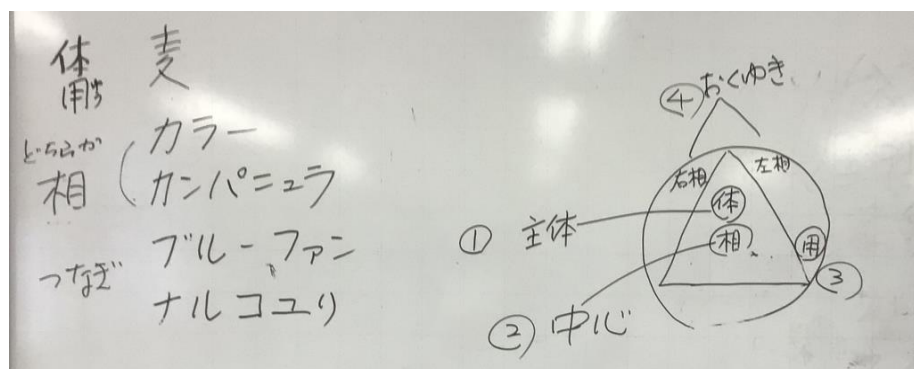 体 麦
用
どちらか カラー
相 カンパニュラ
つなぎ ブルーファン
ナルコユリ
④ おくゆき
右相 左相
体
① 主体
相 用
③
② 中心